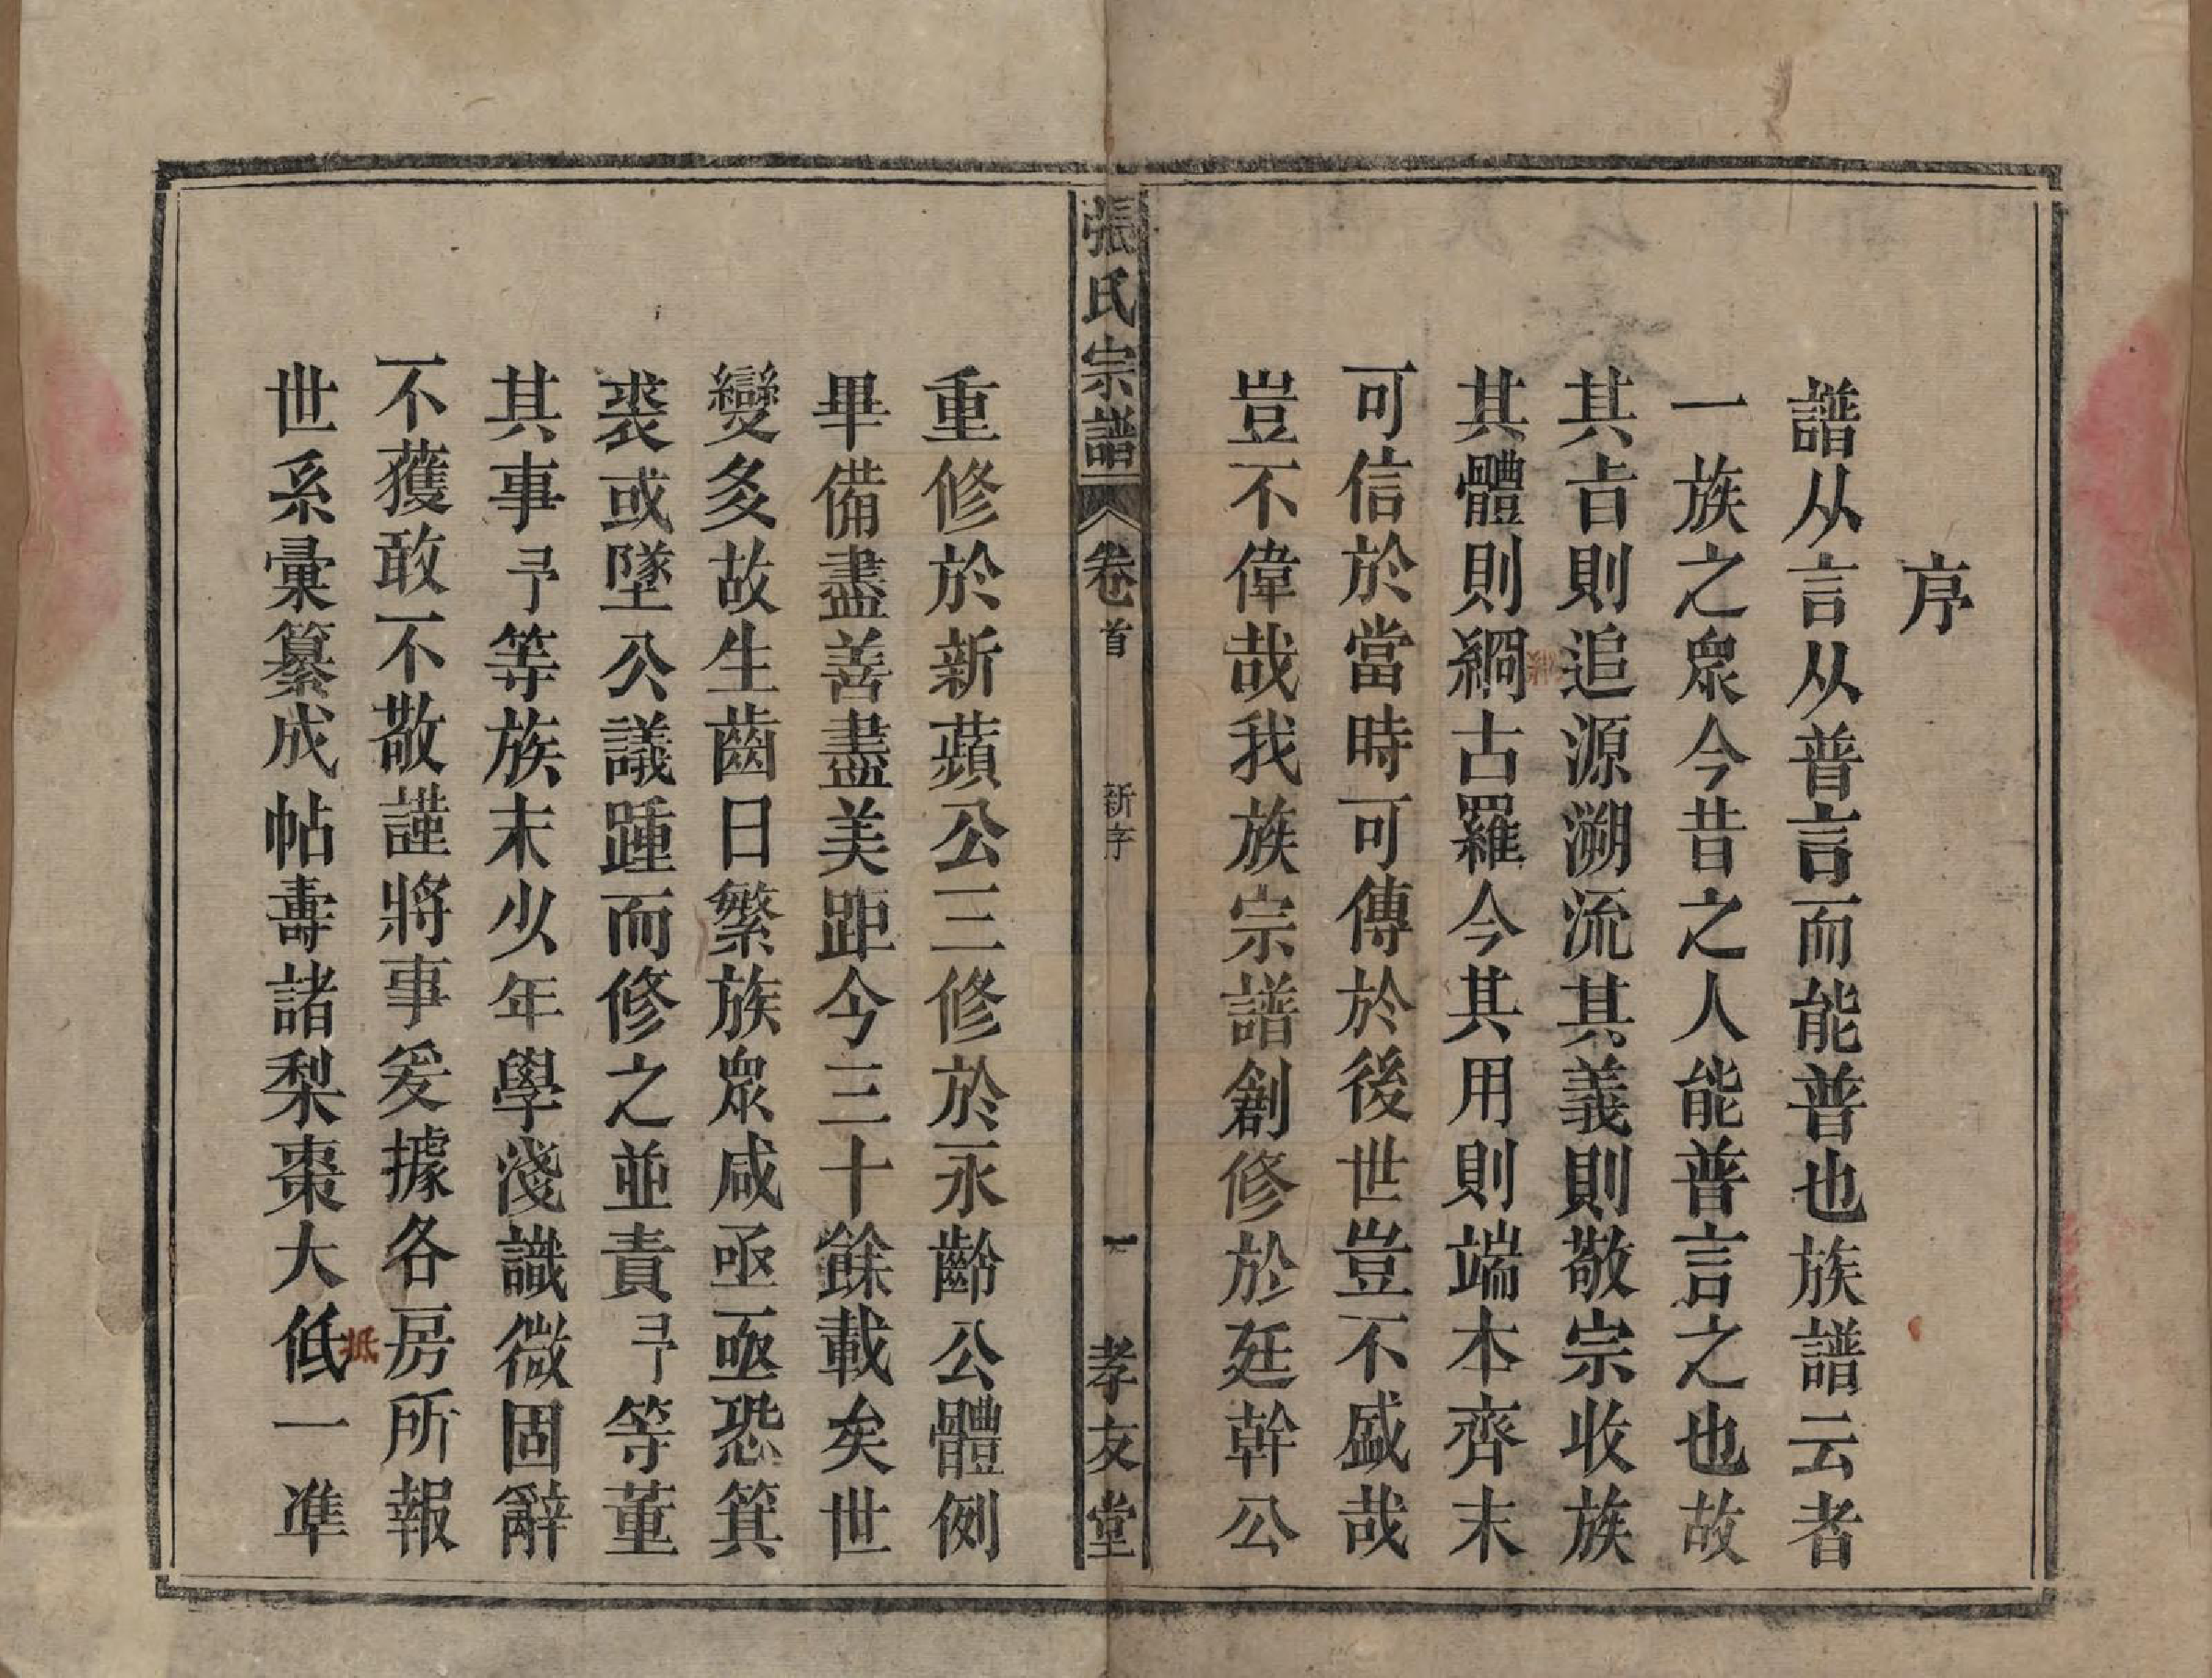 序
譜从言从普言而能普也族譜云者
一族之眾今昔之人能普言之也故
其㫖則追源溯流其義則敬宗收族
其體則綱古羅今其用則端本齊末
可信於當時可傳於後世豈不盛哉
豈不偉哉我族宗譜創修於廷幹公
張氏宗譜 卷首 新序 一 孝友堂
重修於新蘋公三修於永齡公體例
畢備盡善盡美距今三十餘載矣世
變多故生齒日繁族眾咸亟亟恐箕
裘或墜公議踵而修之並責予等董
其事予等族末少年學淺識微固辭
不獲敢不敬謹將事爰據各房所報
世系彙纂成帖壽諸梨棗大低一準
抵